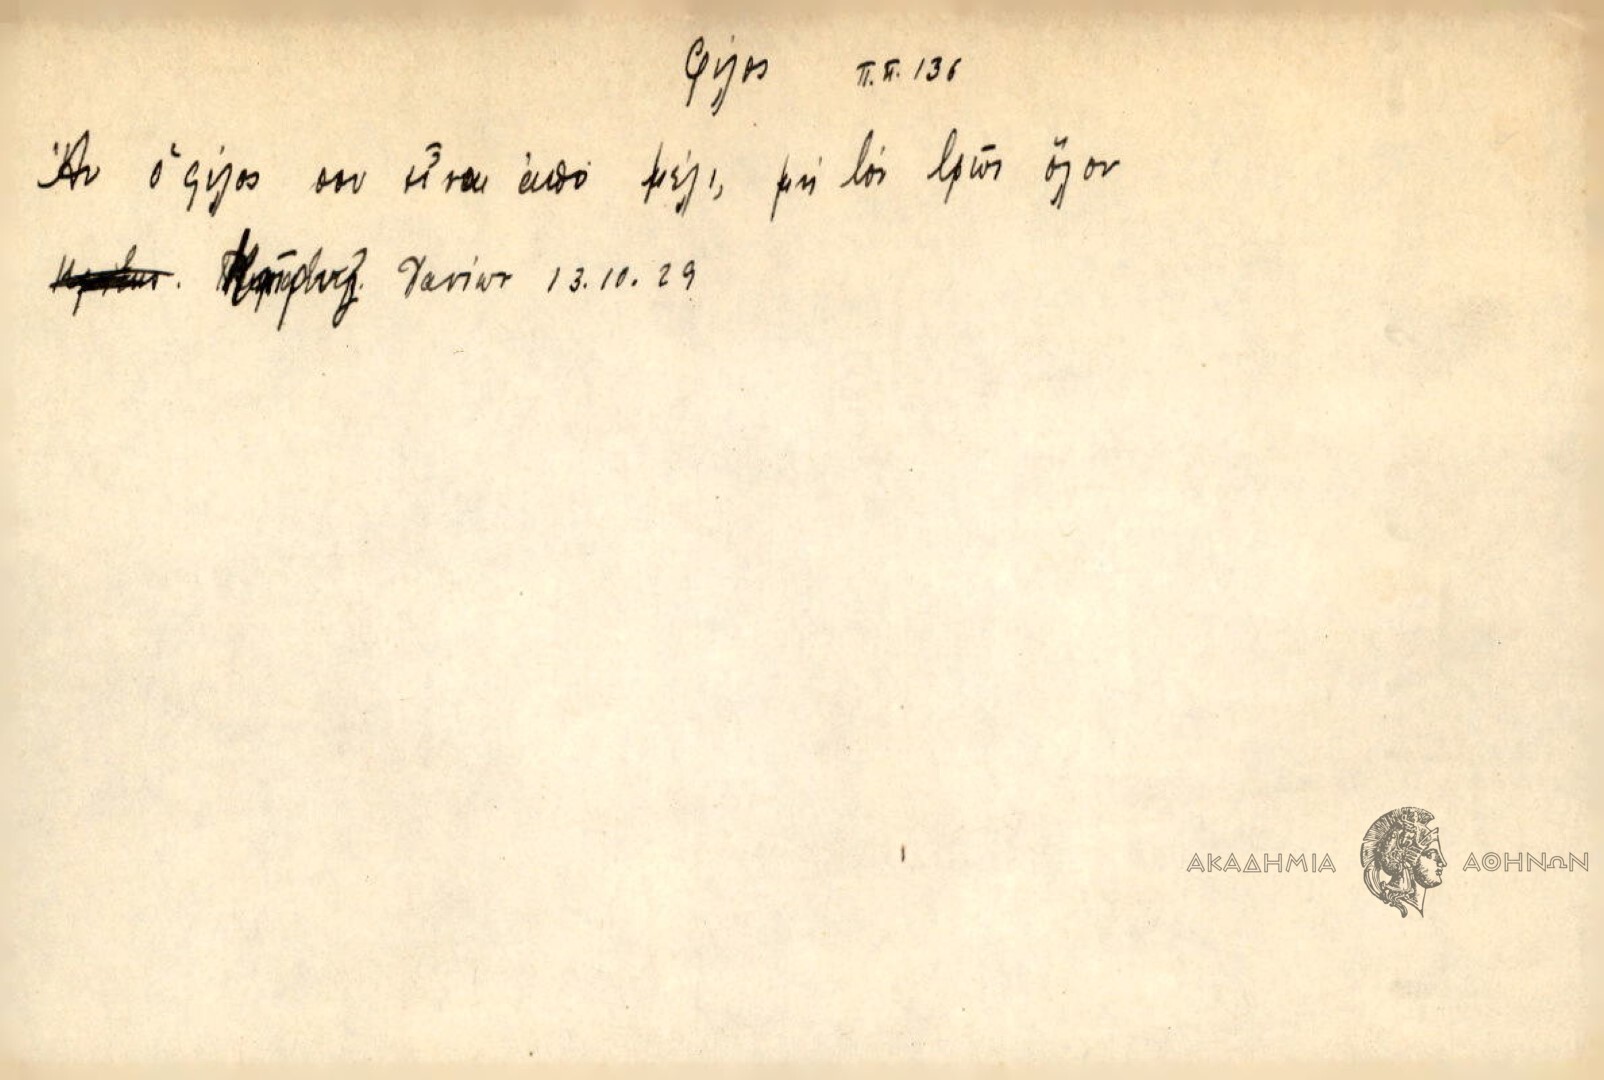 φίλος π.π. 136
Ἂν ὁ φίλος σου εἶναι ἀπὸ μέλι, μὴ τὸν τρῶς ὅλον
Χανίων 13.10.29
ΑΚΑΔΗΜΙΑ ΑΘΗΝΩΝ